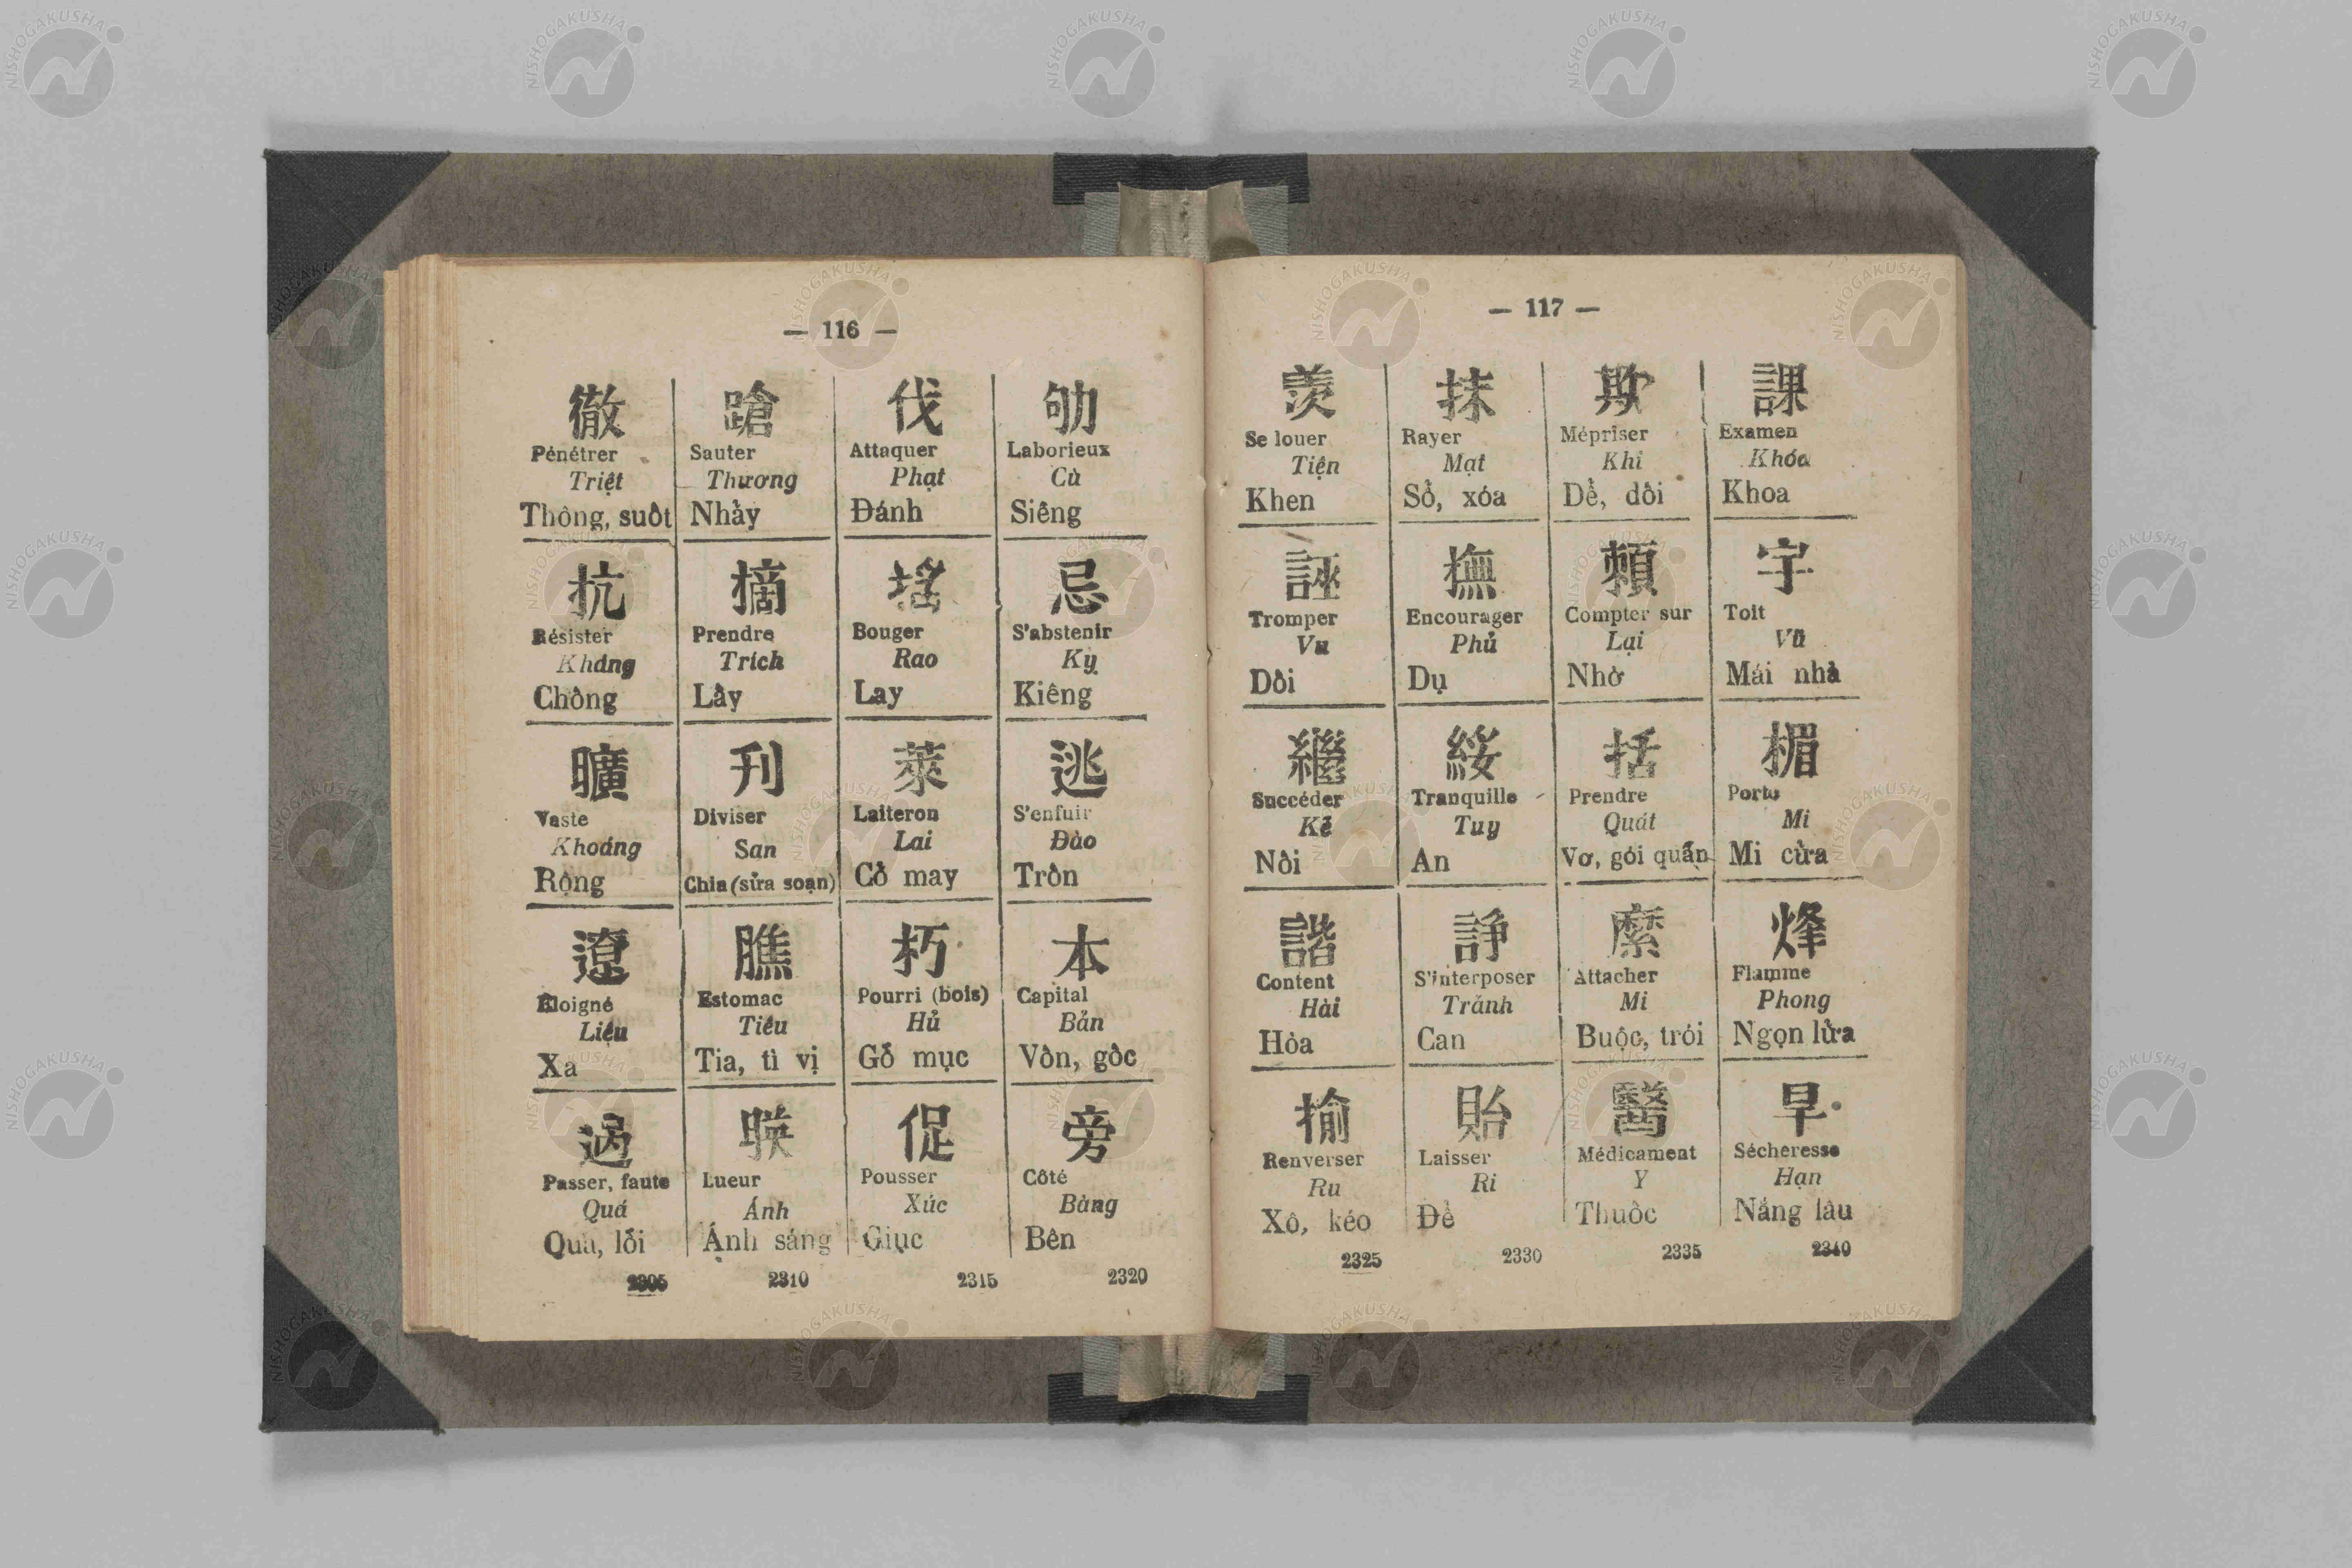 — 116 —
徹 蹌 伐 劬
Pénétrer Sauter Attaquer Laborieux
Triệt Thương Phạt Cù
Thông, suôt Nhảy Đánh Siêng
抗 摘 搖 忌
Résister Prendre Bouger S'abstenir
Kháng Trích Rao Kỵ
Chông Lây Lay Kiêng
曠 刊 萊 逃
Vaste Diviser Laiteron S'enfuir
Khoáng San Lai Đào
Rộng Chia (sửa soạn) Cỏ may Trôn
遼 膲 朽 本
Eloigné Estomac Pourri (bois) Capital
Liêu Tiêu Hủ Bản
Xa Tia, tì vị Gỗ mục Vôn, gôc
過 暎 促 旁
Passer, faute Lueur Pousser Côté
Quá Ánh Xúc Bàng
Quà, lỗi Ánh sáng Giục Bên
2305 2310 2315 2320
— 117 —
羨 抹 欺 課
Se louer Rayer Mépriser Examen
Tiện Mạt Khi Khóa
Khen Sổ, xóa Dể, dôi Khoa
誣 撫 賴 宇
Tromper Encourager Compter sur Toit
Vu Phủ Lại Vũ
Dôi Dụ Nhờ Mái nhà
繼 綏 括 楣
Succéder Tranquille Prendre Porte
Kế Tuy Quát Mi
Nôi An Vơ, gói quấn Mi cửa
諧 諍 縻 烽
Content S'interposer Attacher Flamme
Hài Tránh Mi Phong
Hòa Can Buộc, trói Ngọn lửa
揄 貽 醫 旱
Renverser Laisser Médicament Sécheresse
Ru Ri Y Hạn
Xô, kéo Để Thuôc Nắng lâu
2325 2330 2335 2340
NISHOGAKUSHA